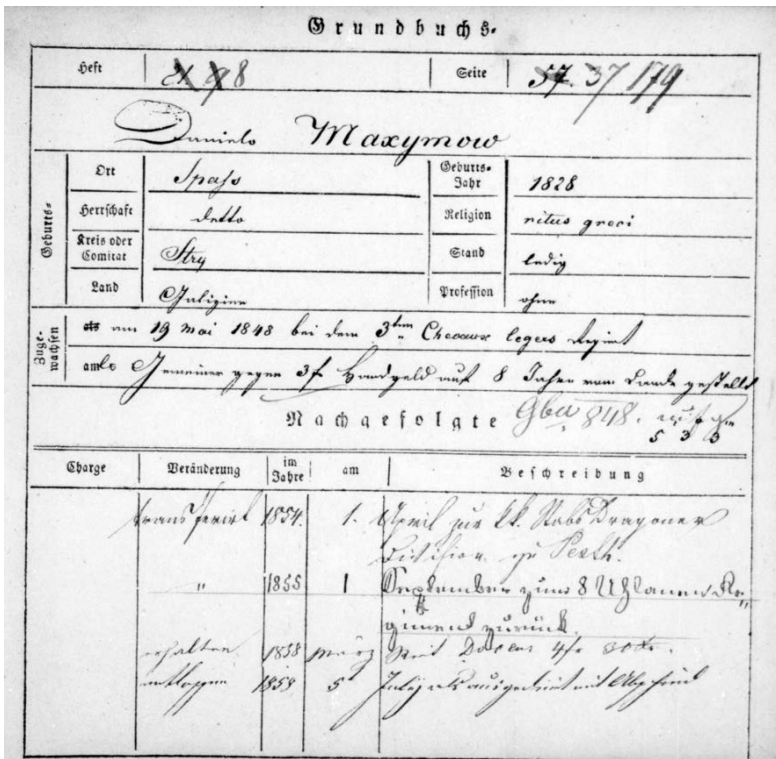 Grundbuchs-
Heft 8 Seite 57. 37 179
Danielo Maxymow
Geburts-
Ort Spass Geburts-Jahr 1828
Herrschaft detto Religion ritus greci
Kreis oder Comitat Stry Stand ledig
Land Galizien Profession ohne
Zugewachsen
am 19 Mai 1848 bei dem 3ten Chevaux legers Regimt
als Gemeiner gegen 3f Handgeld auf 8 Jahre vom Lande gestellt
Nachgefolgte Gba 848.
5 3 3
Charge Veränderung im Jahre am Beschreibung
transferirt 1854. 1. April zur kk. Stabs Dragoner
Division zu Pesth.
" 1855 1 September zum 8 Uhlanen Re„
giment zurück.
erhalten 1858 März
entlassen 1858 5 July als ausgedient mit Abschied